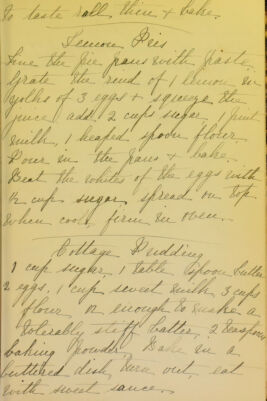 to taste roll thin + bake.
Lemon Pies
Line the pie pans with paste.
Grate the rind of 1 lemon in
yolks of 3 eggs + squeeze the
juice, add 2 cups sugar, 1 pint
milk, 1 heaped spoon flour.
Pour in the pans + bake.
Beat the whites of the eggs with
½ cup sugar, spread on top
when cool, firm in oven.
Cottage Pudding
1 cup sugar, 1 table spoon butter
2 eggs, 1 cup sweet milk, 3 cups
flour, or enough to make a
tolerably stiff batter, 2 teaspoons
baking powder. Bake in a
buttered dish, turn out, eat
with sweet sauce.